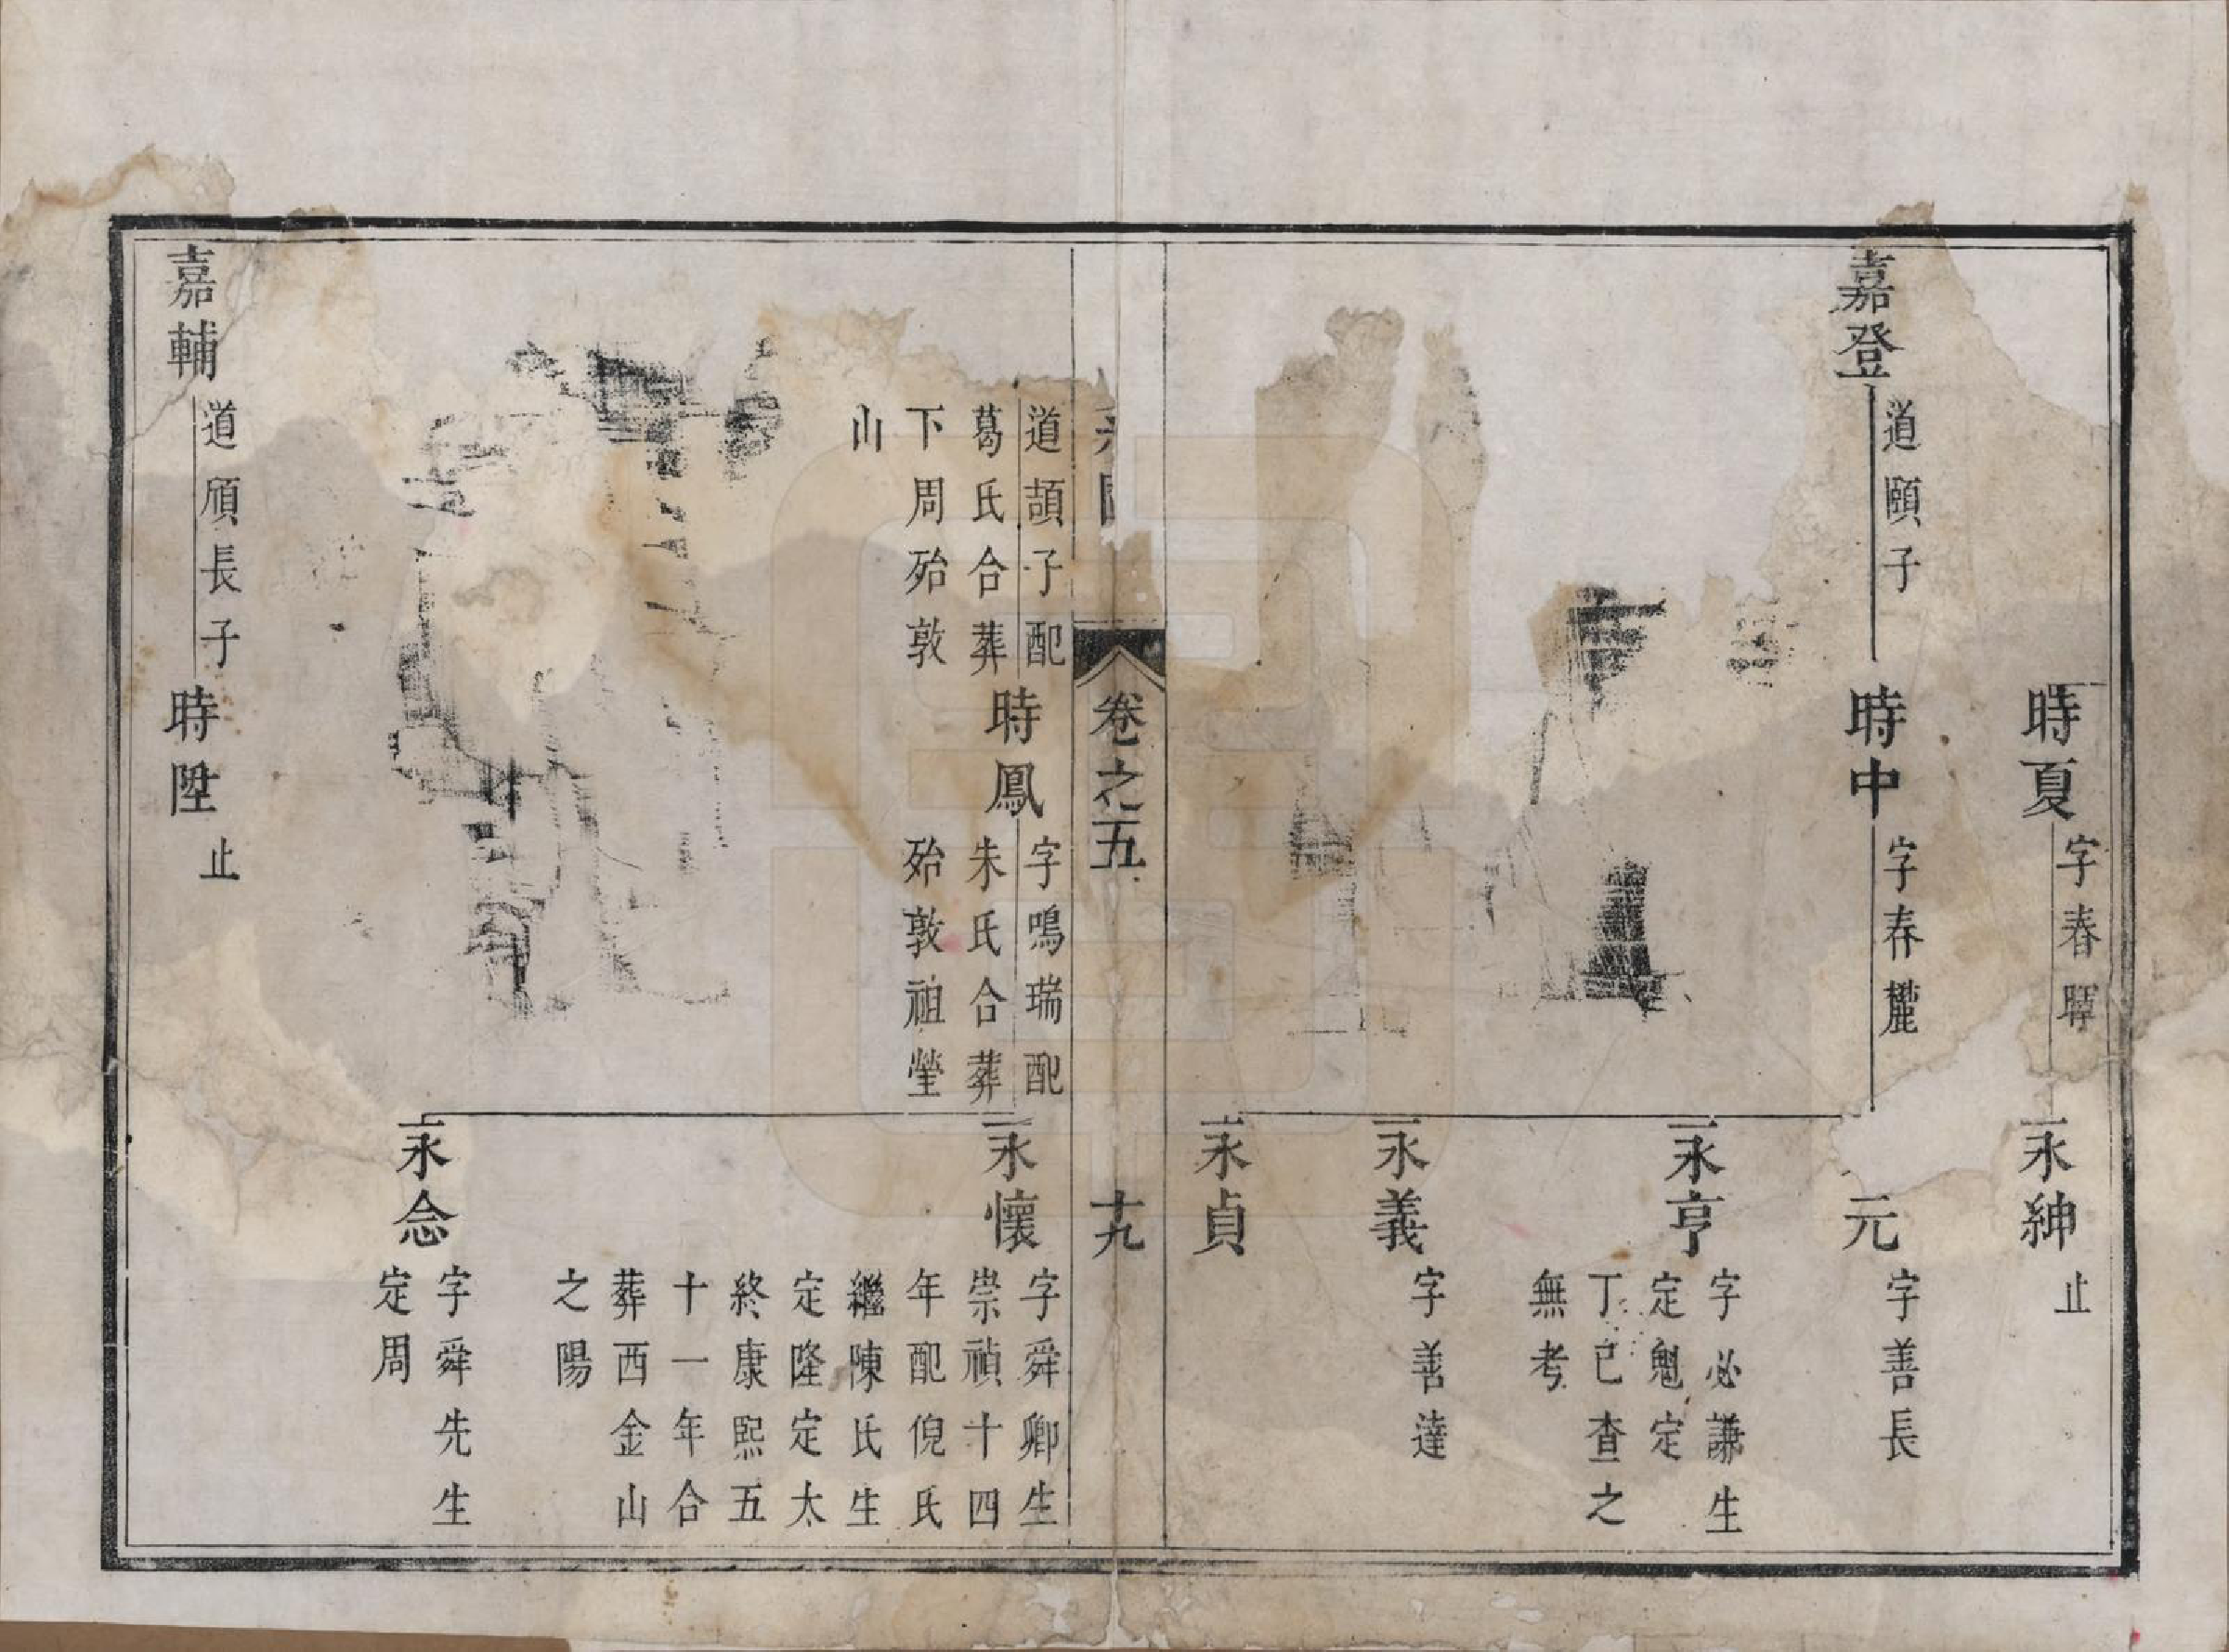 時夏
字春暉
永紳
止
嘉登
道頤子
時中
字春麓
元
字善長
永亨
字必謙生
定魁定
丁已查之
無考
永義
字善達
永貞
卷之五
十九
道頡子配
葛氏合葬
下周殆敦
山
時鳳
字鳴瑞配
朱氏合葬
殆敦祖塋
永懷
字舜卿生
崇禎十四
年配倪氏
繼陳氏生
定隆定太
終康熙五
十一年合
葬西金山
之陽
永念
字舜先生
定周
嘉輔
道頎長子
時陞
止